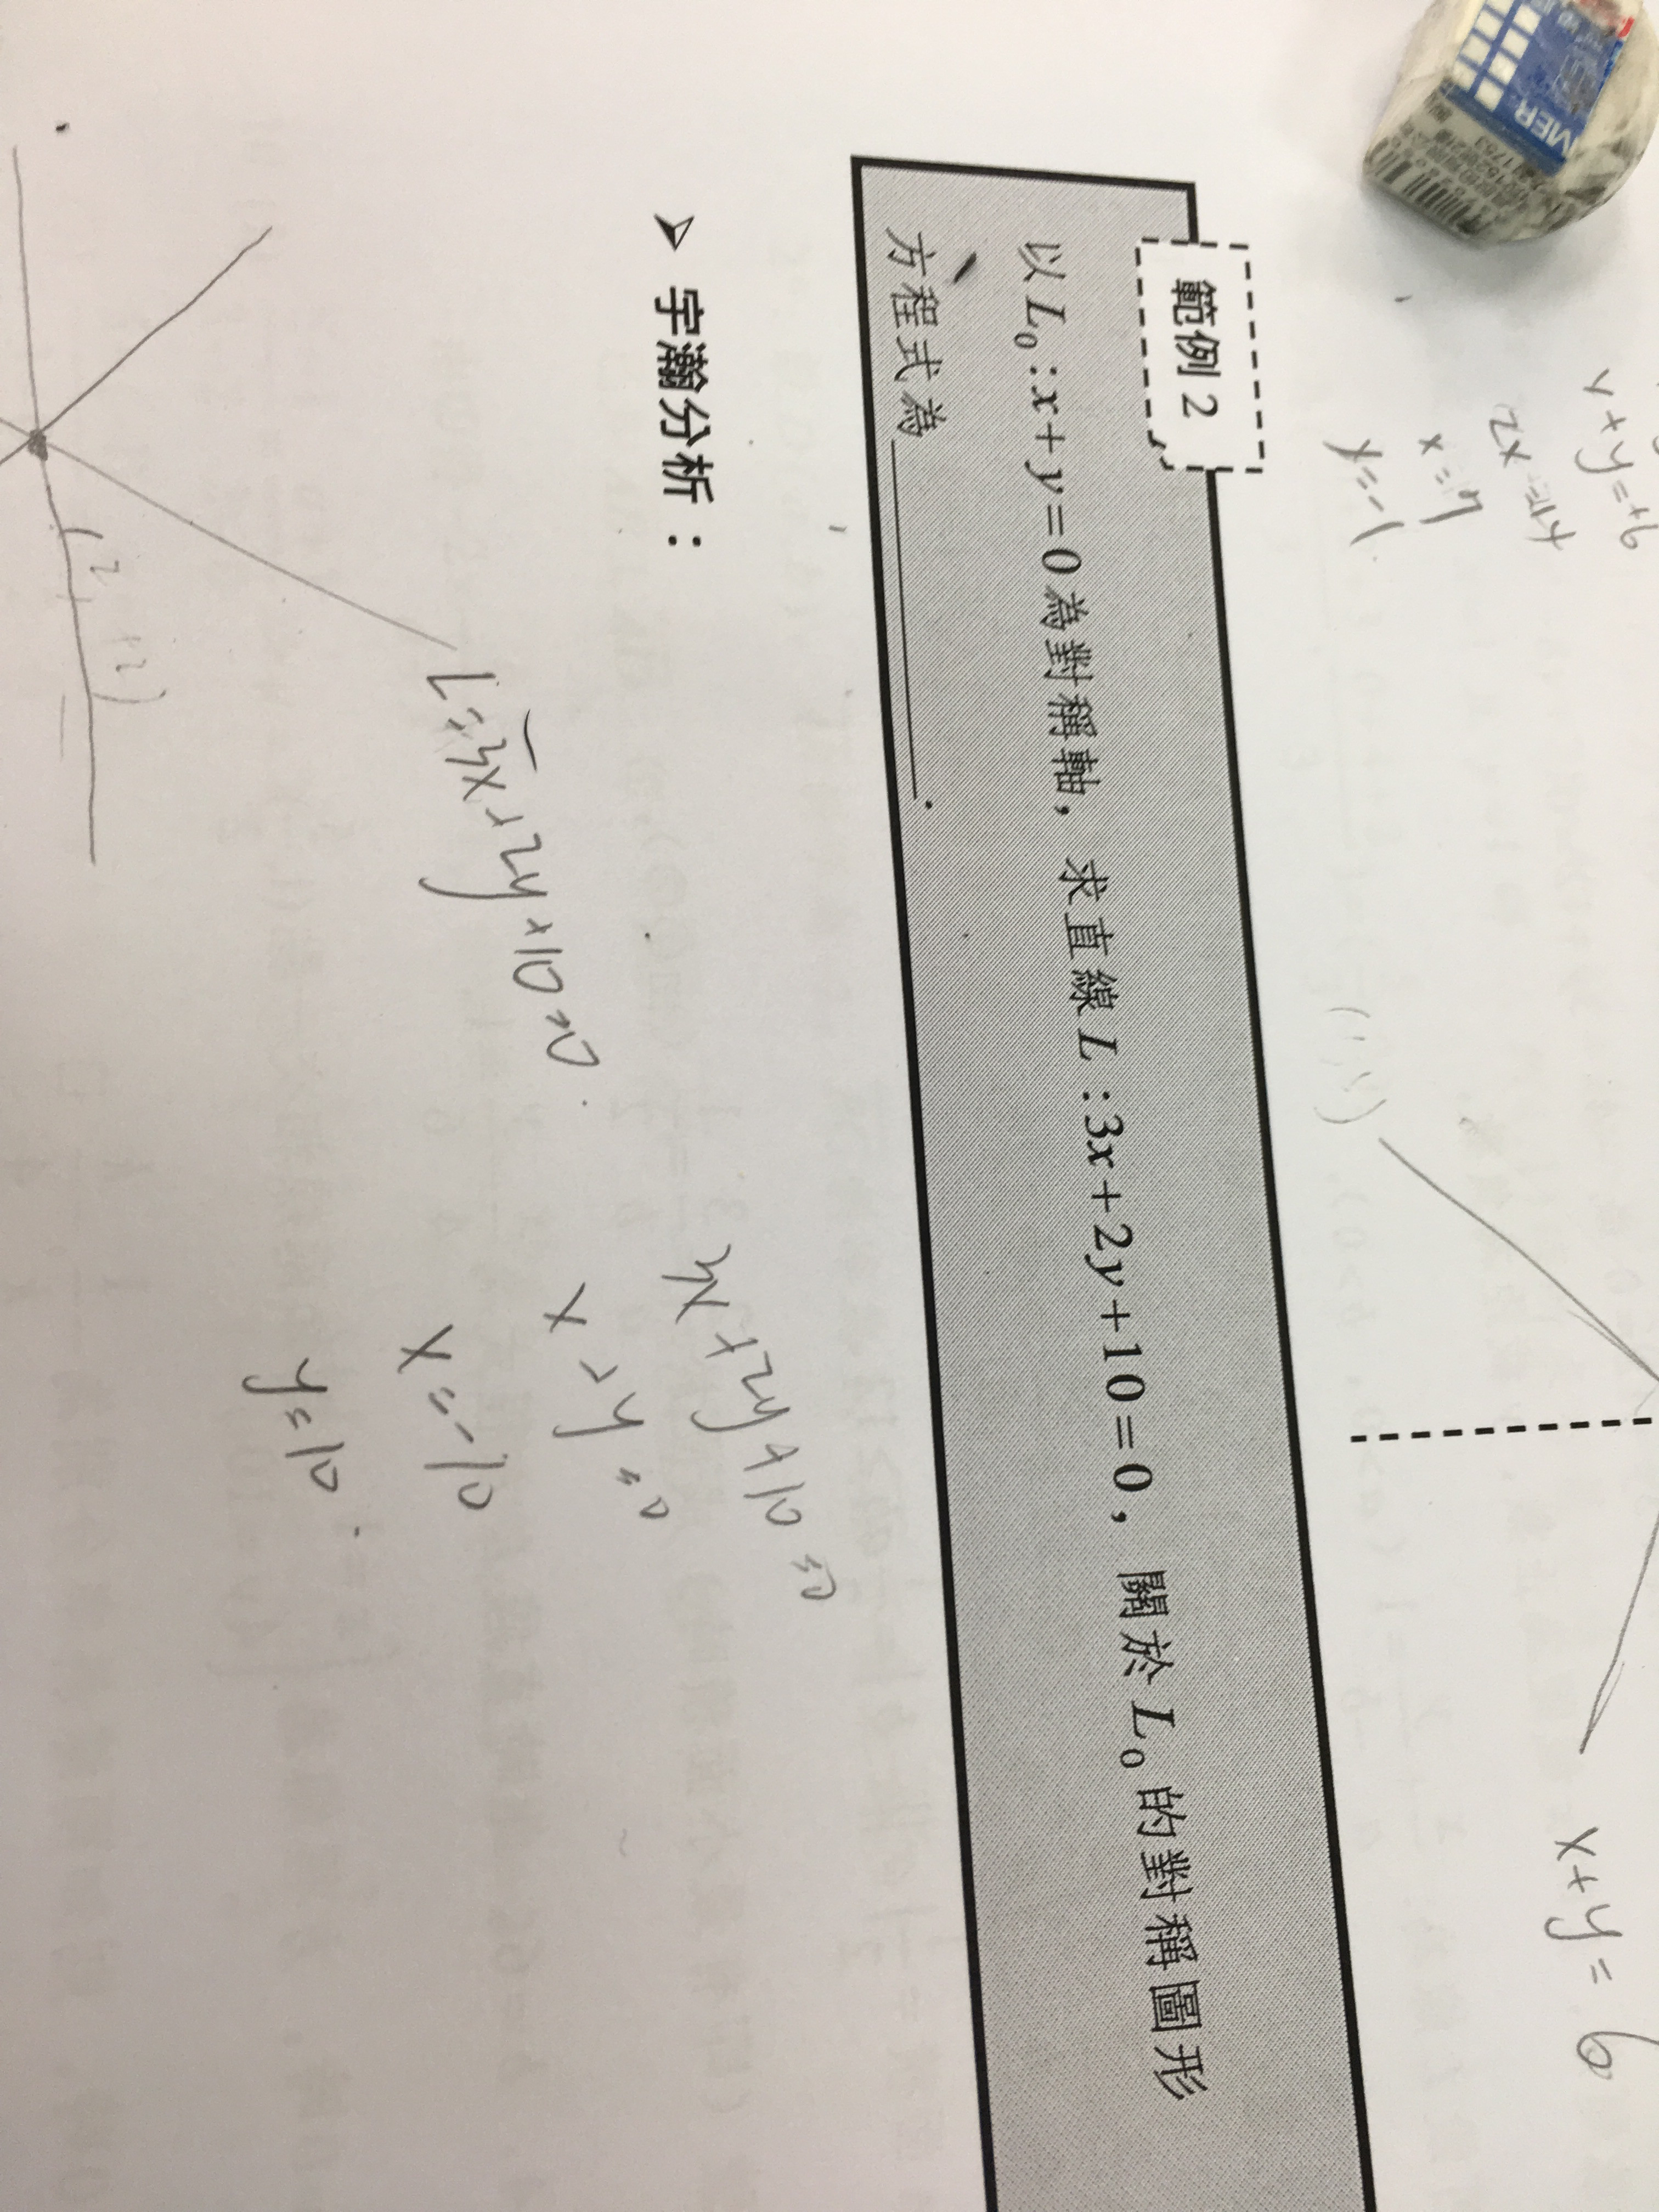 MER
x+y=+6
2x=14
x=7
y=-1
x+y=6
範例 2
以 L₀:x+y=0 為對稱軸, 求直線 L:3x+2y+10=0, 關於 L₀ 的對稱圖形
方程式為 ________.
➢ 宇瀚分析:
L=3x+2y+10=0
3x+2y+10=0
x+y=0
x=-10
y=10